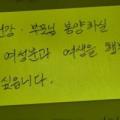 부모님 봉양하실
여성분과 여생을
싶습니다.